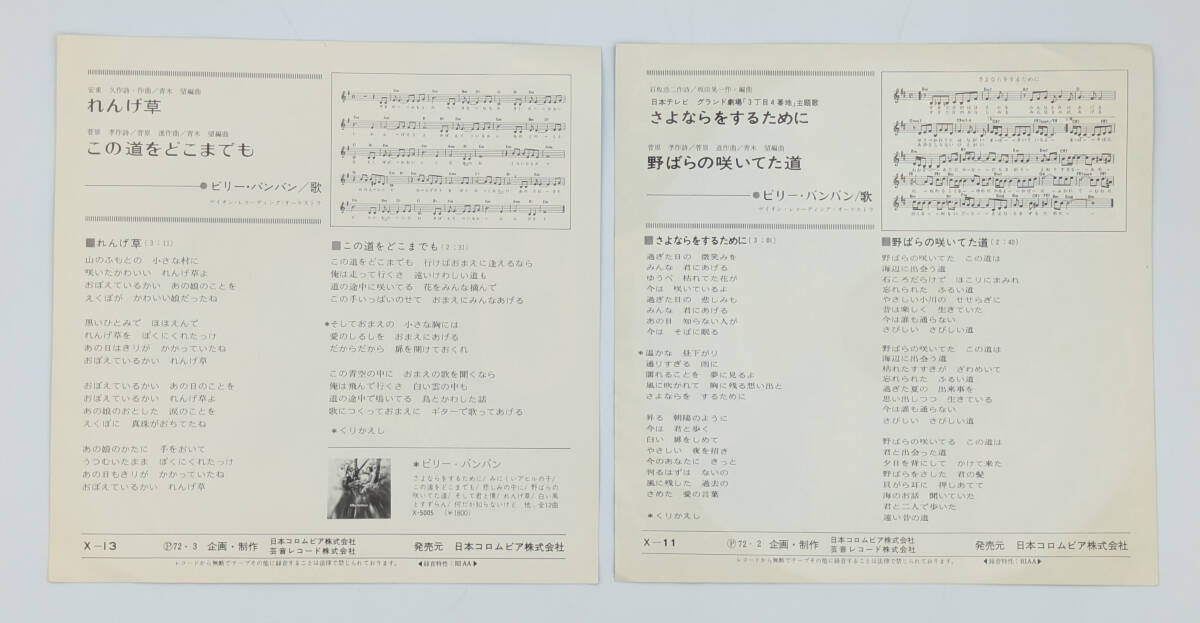 安東 久作詩・作曲/青木 望編曲
れんげ草
菅原 孝作詩/菅原 進作曲/青木 望編曲
この道をどこまでも
●ビリー・バンバン/歌
ケイオン・レコーディング・オーケストラ
■れんげ草(3:11)
山のふもとの 小さな村に
咲いたかわいい れんげ草よ
おぼえているかい あの娘のことを
えくぼが かわいい娘だったね
黒いひとみで ほほえんで
れんげ草を ぼくにくれたっけ
あの日はきりが かかっていたね
おぼえているかい れんげ草
おぼえているかい あの日のことを
おぼえているかい れんげ草よ
あの娘のおとした 涙のことを
えくぼに 真珠がおちてたね
あの娘のかたに 手をおいて
うつむいたまま ぼくにくれたっけ
あの日もきりが かかっていたね
おぼえているかい れんげ草
■この道をどこまでも(2:31)
この道をどこまでも 行けばおまえに逢えるなら
俺は走って行くさ 遠いけわしい道も
道の途中に咲いてる 花をみんな摘んで
この手いっぱいのせて おまえにみんなあげる
*そしておまえの 小さな胸には
愛のしるしを おまえにあげる
だからだから 扉を開けておくれ
この青空の中に おまえの歌を聞くなら
俺は飛んで行くさ 白い雲の中も
道の途中で鳴いてる 鳥とかわした話
歌につくっておまえに ギターで歌ってあげる
*くりかえし
*ビリー・バンバン
さよならをするために/みにくいアヒルの子/
この道をどこまでも/悲しみの中に/野ばらの
咲いてた道/そして君と僕/れんげ草/白い馬
とすずらん/何だか知らないけど 他、全12曲
X-5005 (¥1800)
X-13 Ⓟ72・3 企画・制作 日本コロムビア株式会社
芸音レコード株式会社 発売元 日本コロムビア株式会社
レコードから無断でテープその他に録音することは法律で禁じられております。 ◀録音特性:RIAA▶
石坂浩二作詩/坂田晃一作・編曲
日本テレビ グランド劇場「3丁目4番地」主題歌
さよならをするために
菅原 孝作詩/菅原 進作曲/青木 望編曲
野ばらの咲いてた道
●ビリー・バンバン/歌
ケイオン・レコーディング・オーケストラ
さよならをするために
■さよならをするために(3:01)
過ぎた日の 微笑みを
みんな 君にあげる
ゆうべ 枯れてた花が
今は 咲いているよ
過ぎた日の 悲しみも
みんな 君にあげる
あの日 知らない人が
今は そばに眠る
*温かな 昼下がり
通りすぎる 雨に
濡れることを 夢に見るよ
風に吹かれて 胸に残る思い出と
さよならを するために
昇る 朝陽のように
今は 君と歩く
白い 扉をしめて
やさしい 夜を招き
今のあなたに きっと
判るはずは ないの
風に残した 過去の
さめた 愛の言葉
*くりかえし
■野ばらの咲いてた道(2:40)
野ばらの咲いてた この道は
海辺に出会う道
石ころだらけで ほこりにまみれ
忘れられた ふるい道
やさしい小川の せせらぎに
昔は楽しく 生きていた
今は誰も通らない
さびしい さびしい道
野ばらの咲いてた この道は
海辺に出会う道
枯れたすすきが ざわめいて
忘れられた ふるい道
過ぎた夏の 出来事を
思い出しつつ 生きている
今は誰も通らない
さびしい さびしい道
野ばらの咲いてる この道は
君と出会った道
夕日を背にして かけて来た
野ばらをさした 君の髪
貝がら耳に 押しあてて
海のお話 聞いていた
君と二人で歩いた
遠い昔の道
X-11 Ⓟ72・2 企画・制作 日本コロムビア株式会社
芸音レコード株式会社 発売元 日本コロムビア株式会社
レコードから無断でテープその他に録音することは法律で禁じられております。 ◀録音特性:RIAA▶